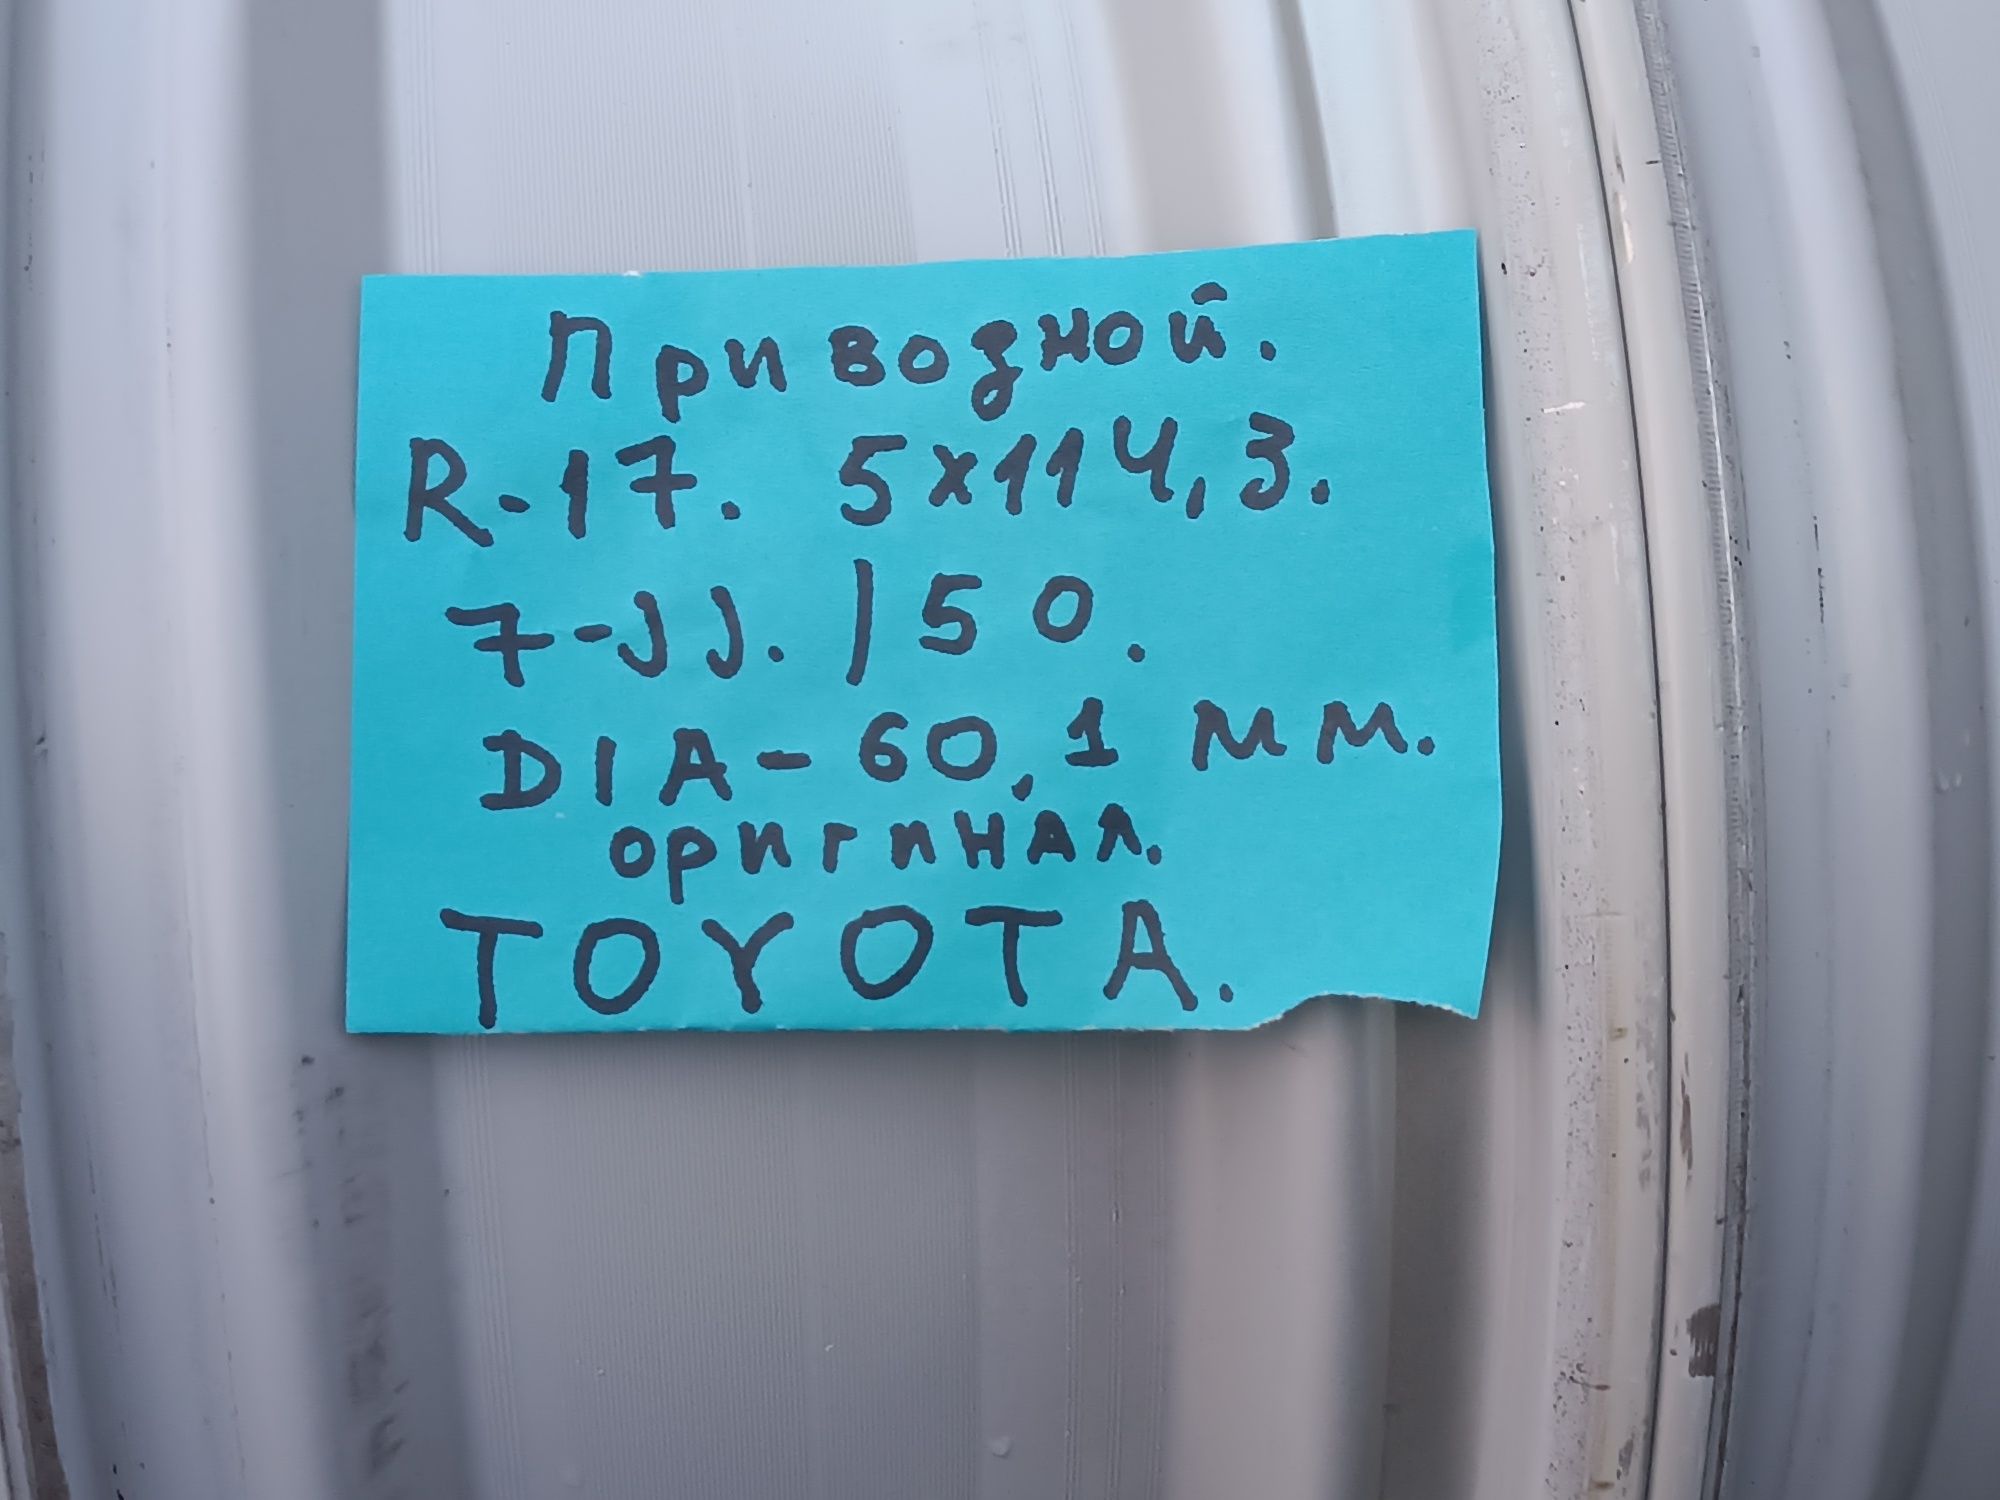 Приводной.
R-17. 5x114,3.
7-JJ. /50.
DIA-60,1 мм.
оригинал.
TOYOTA.